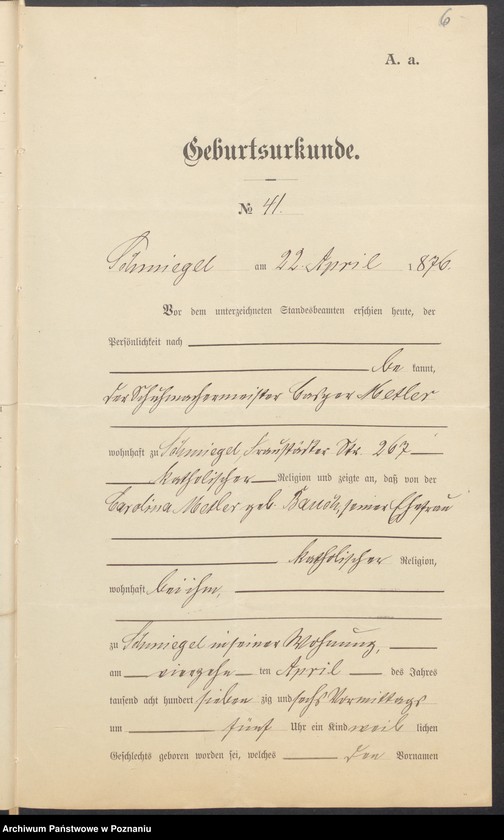 6
A. a.
Geburtsurkunde.
№ 41.
Schmiegel am 22 April 1876.
Vor dem unterzeichneten Standesbeamten erschien heute, der
Persönlichkeit nach
be kannt,
der Schuhmachermeister Casper Metler
wohnhaft zu Schmiegel, Fraustädter Str. 267
katholischer Religion und zeigte an, daß von der
Carolina Metler geb. Bausch, seiner Ehefrau
katholischer Religion,
wohnhaft bei ihm,
zu Schmiegel in seiner Wohnung,
am vierzehn ten April des Jahres
tausend acht hundert sieben zig und sechs Vormittags
um fünf Uhr ein Kind weib lichen
Geschlechts geboren worden sei, welches den Vornamen
Archiwum Państwowe w Poznaniu